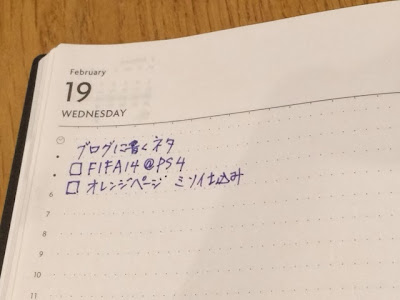 February
19
WEDNESDAY
ブログに書くネタ
□ FIFA14@PS4
□ オレンジページ ミソイ仕込み
6
8
9
10
11